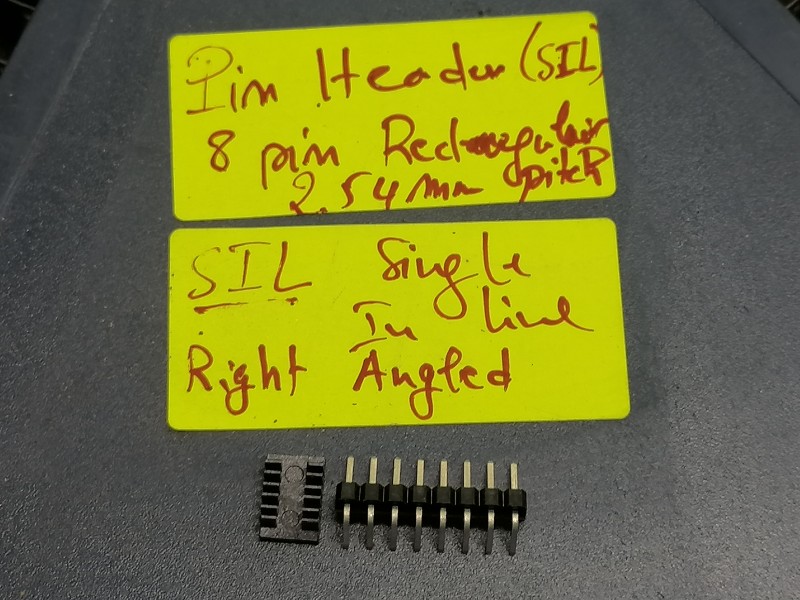 Pin Header (SIL)
8 pin Rectangular
2.54mm pitch
SIL Single
In line
Right Angled